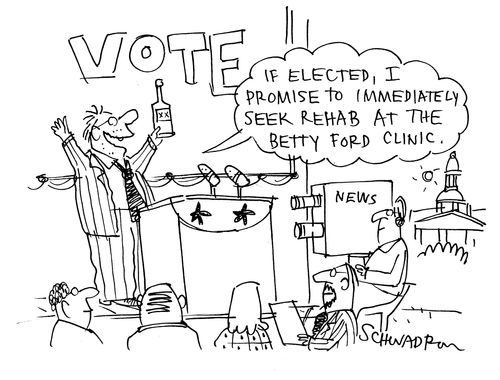 VOTE
IF ELECTED, I
PROMISE TO IMMEDIATELY
SEEK REHAB AT THE
BETTY FORD CLINIC.
XX
NEWS
SCHWADRON